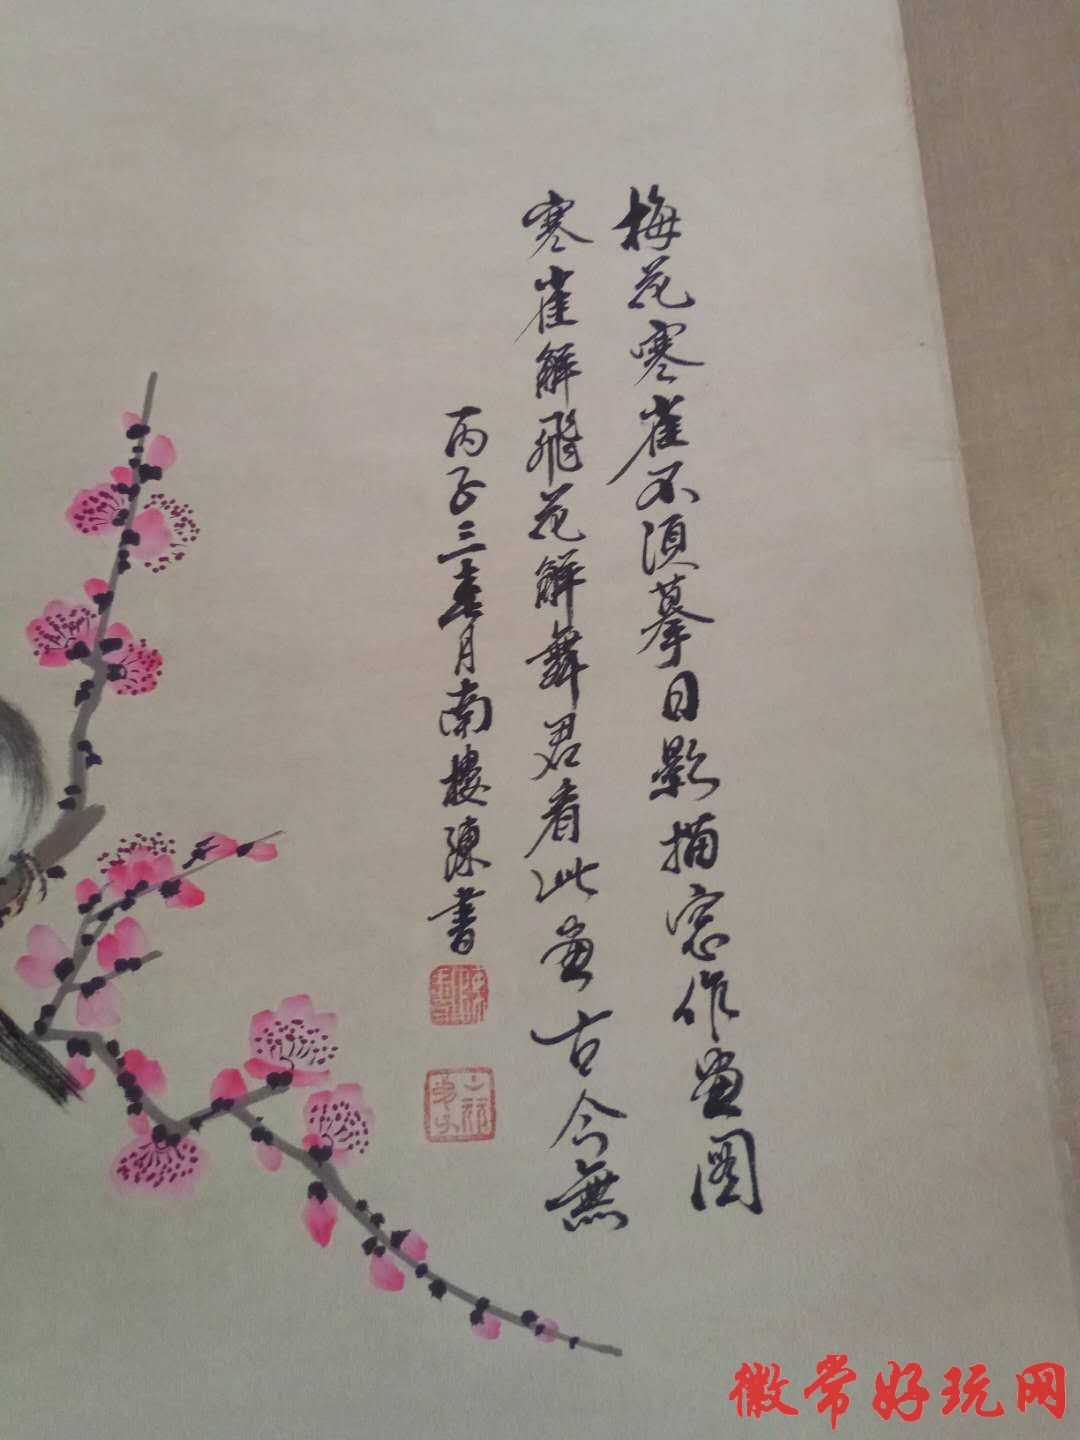 梅花寒雀不須摹日影描窓作畫圖
寒雀解飛花解舞君看此畫古今無
丙子三春月南樓陳書
徽常好玩网